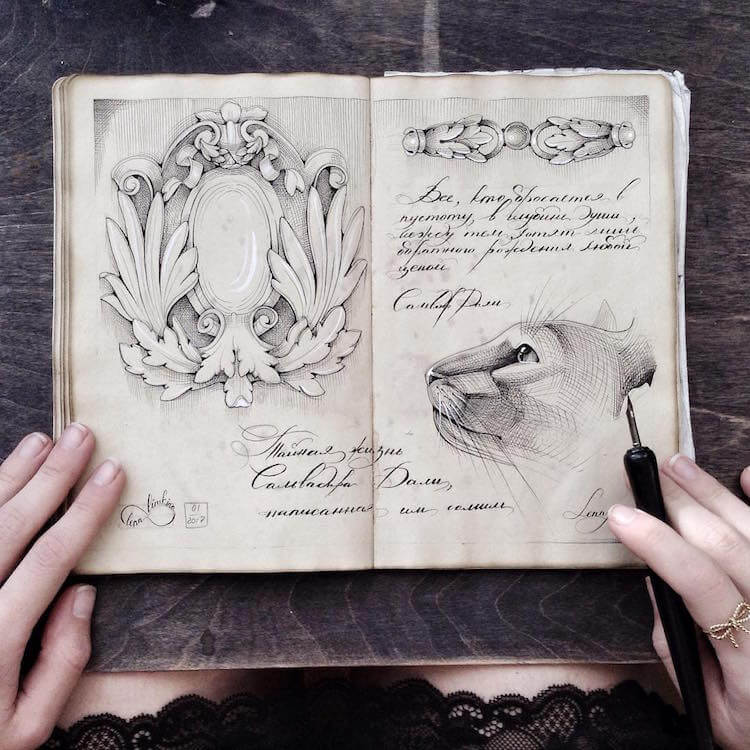 Все, кто бросается в
пустоту, в глубине души,
между тем хотят лишь
обратного рождения любой
ценой
Сальвадор Дали
Тайная жизнь
Сальвадора Дали,
написанная им самим
Lena
01
2017